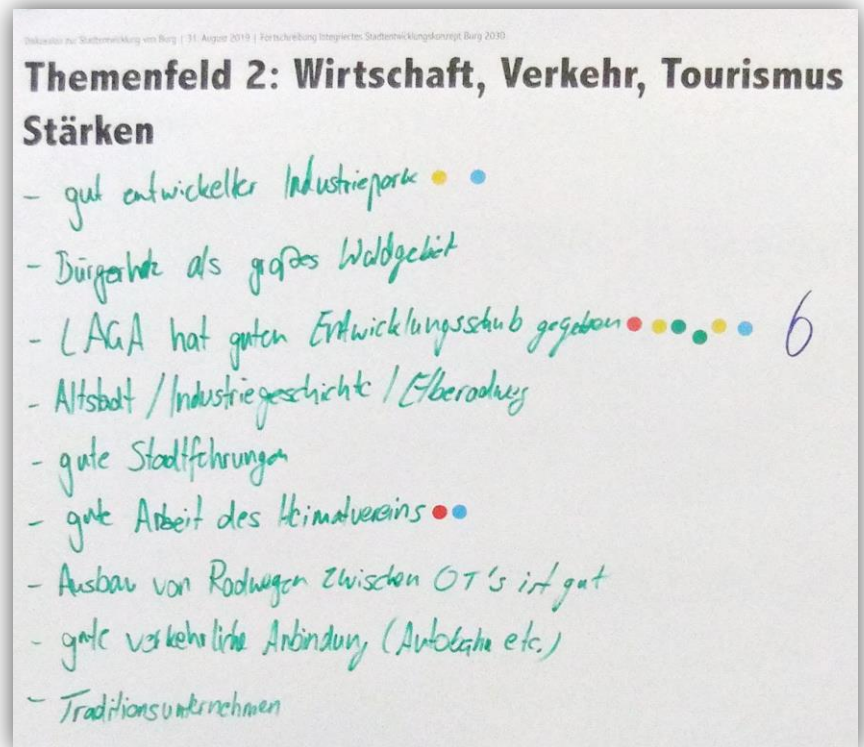 Diskussion zur Stadtentwicklung von Burg | 31. August 2019 | Fortschreibung Integriertes Stadtentwicklungskonzept Burg 2030
Themenfeld 2: Wirtschaft, Verkehr, Tourismus
Stärken
- gut entwickelter Industriepark
- Bürgerholz als großes Waldgebiet
- LAGA hat guten Entwicklungsschub gegeben 6
- Altstadt / Industriegeschichte / Elberadweg
- gute Stadtführungen
- gute Arbeit des Heimatvereins
- Ausbau von Radwegen zwischen OT's ist gut
- gute verkehrliche Anbindung (Autobahn etc.)
- Traditionsunternehmen